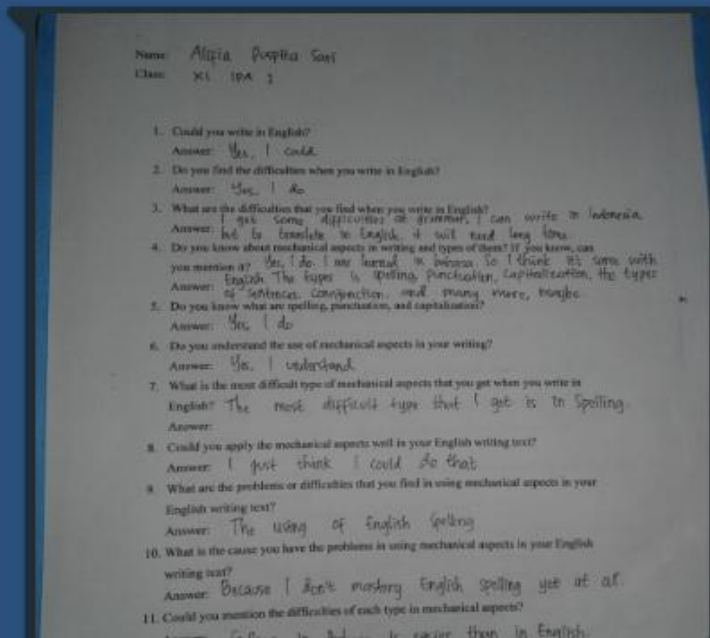 Name: Alifia Puspita Sari
Class: XI IPA 1
1. Could you write in English?
Answer: Yes, I could
2. Do you find the difficulties when you write in English?
Answer: Yes, I do
3. What are the difficulties that you find when you write in English?
I get some difficulties at grammar, I can write in Indonesia
Answer: but to translate in English, it will need long time.
4. Do you know about mechanical aspects in writing and types of them? If you know, can
you mention it? Yes, I do. I was learned in bahasa. So I think it's same with
Answer: English. The types is spelling, punctuation, capitalization, the types
of sentences, conjunction, and many more, maybe
5. Do you know what are spelling, punctuation, and capitalization?
Answer: Yes, I do
6. Do you understand the use of mechanical aspects in your writing?
Answer: Yes, I understand
7. What is the most difficult type of mechanical aspects that you get when you write in
English? The most difficult type that I get is in Spelling.
Answer:
8. Could you apply the mechanical aspects well in your English writing text?
Answer: I just think I could do that
9. What are the problems or difficulties that you find in using mechanical aspects in your
English writing text?
Answer: The using of English Spelling
10. What is the cause you have the problems in using mechanical aspects in your English
writing text?
Answer: Because I don't mastery English spelling yet at all.
11. Could you mention the difficulties of each type in mechanical aspects?
is easier than in English.